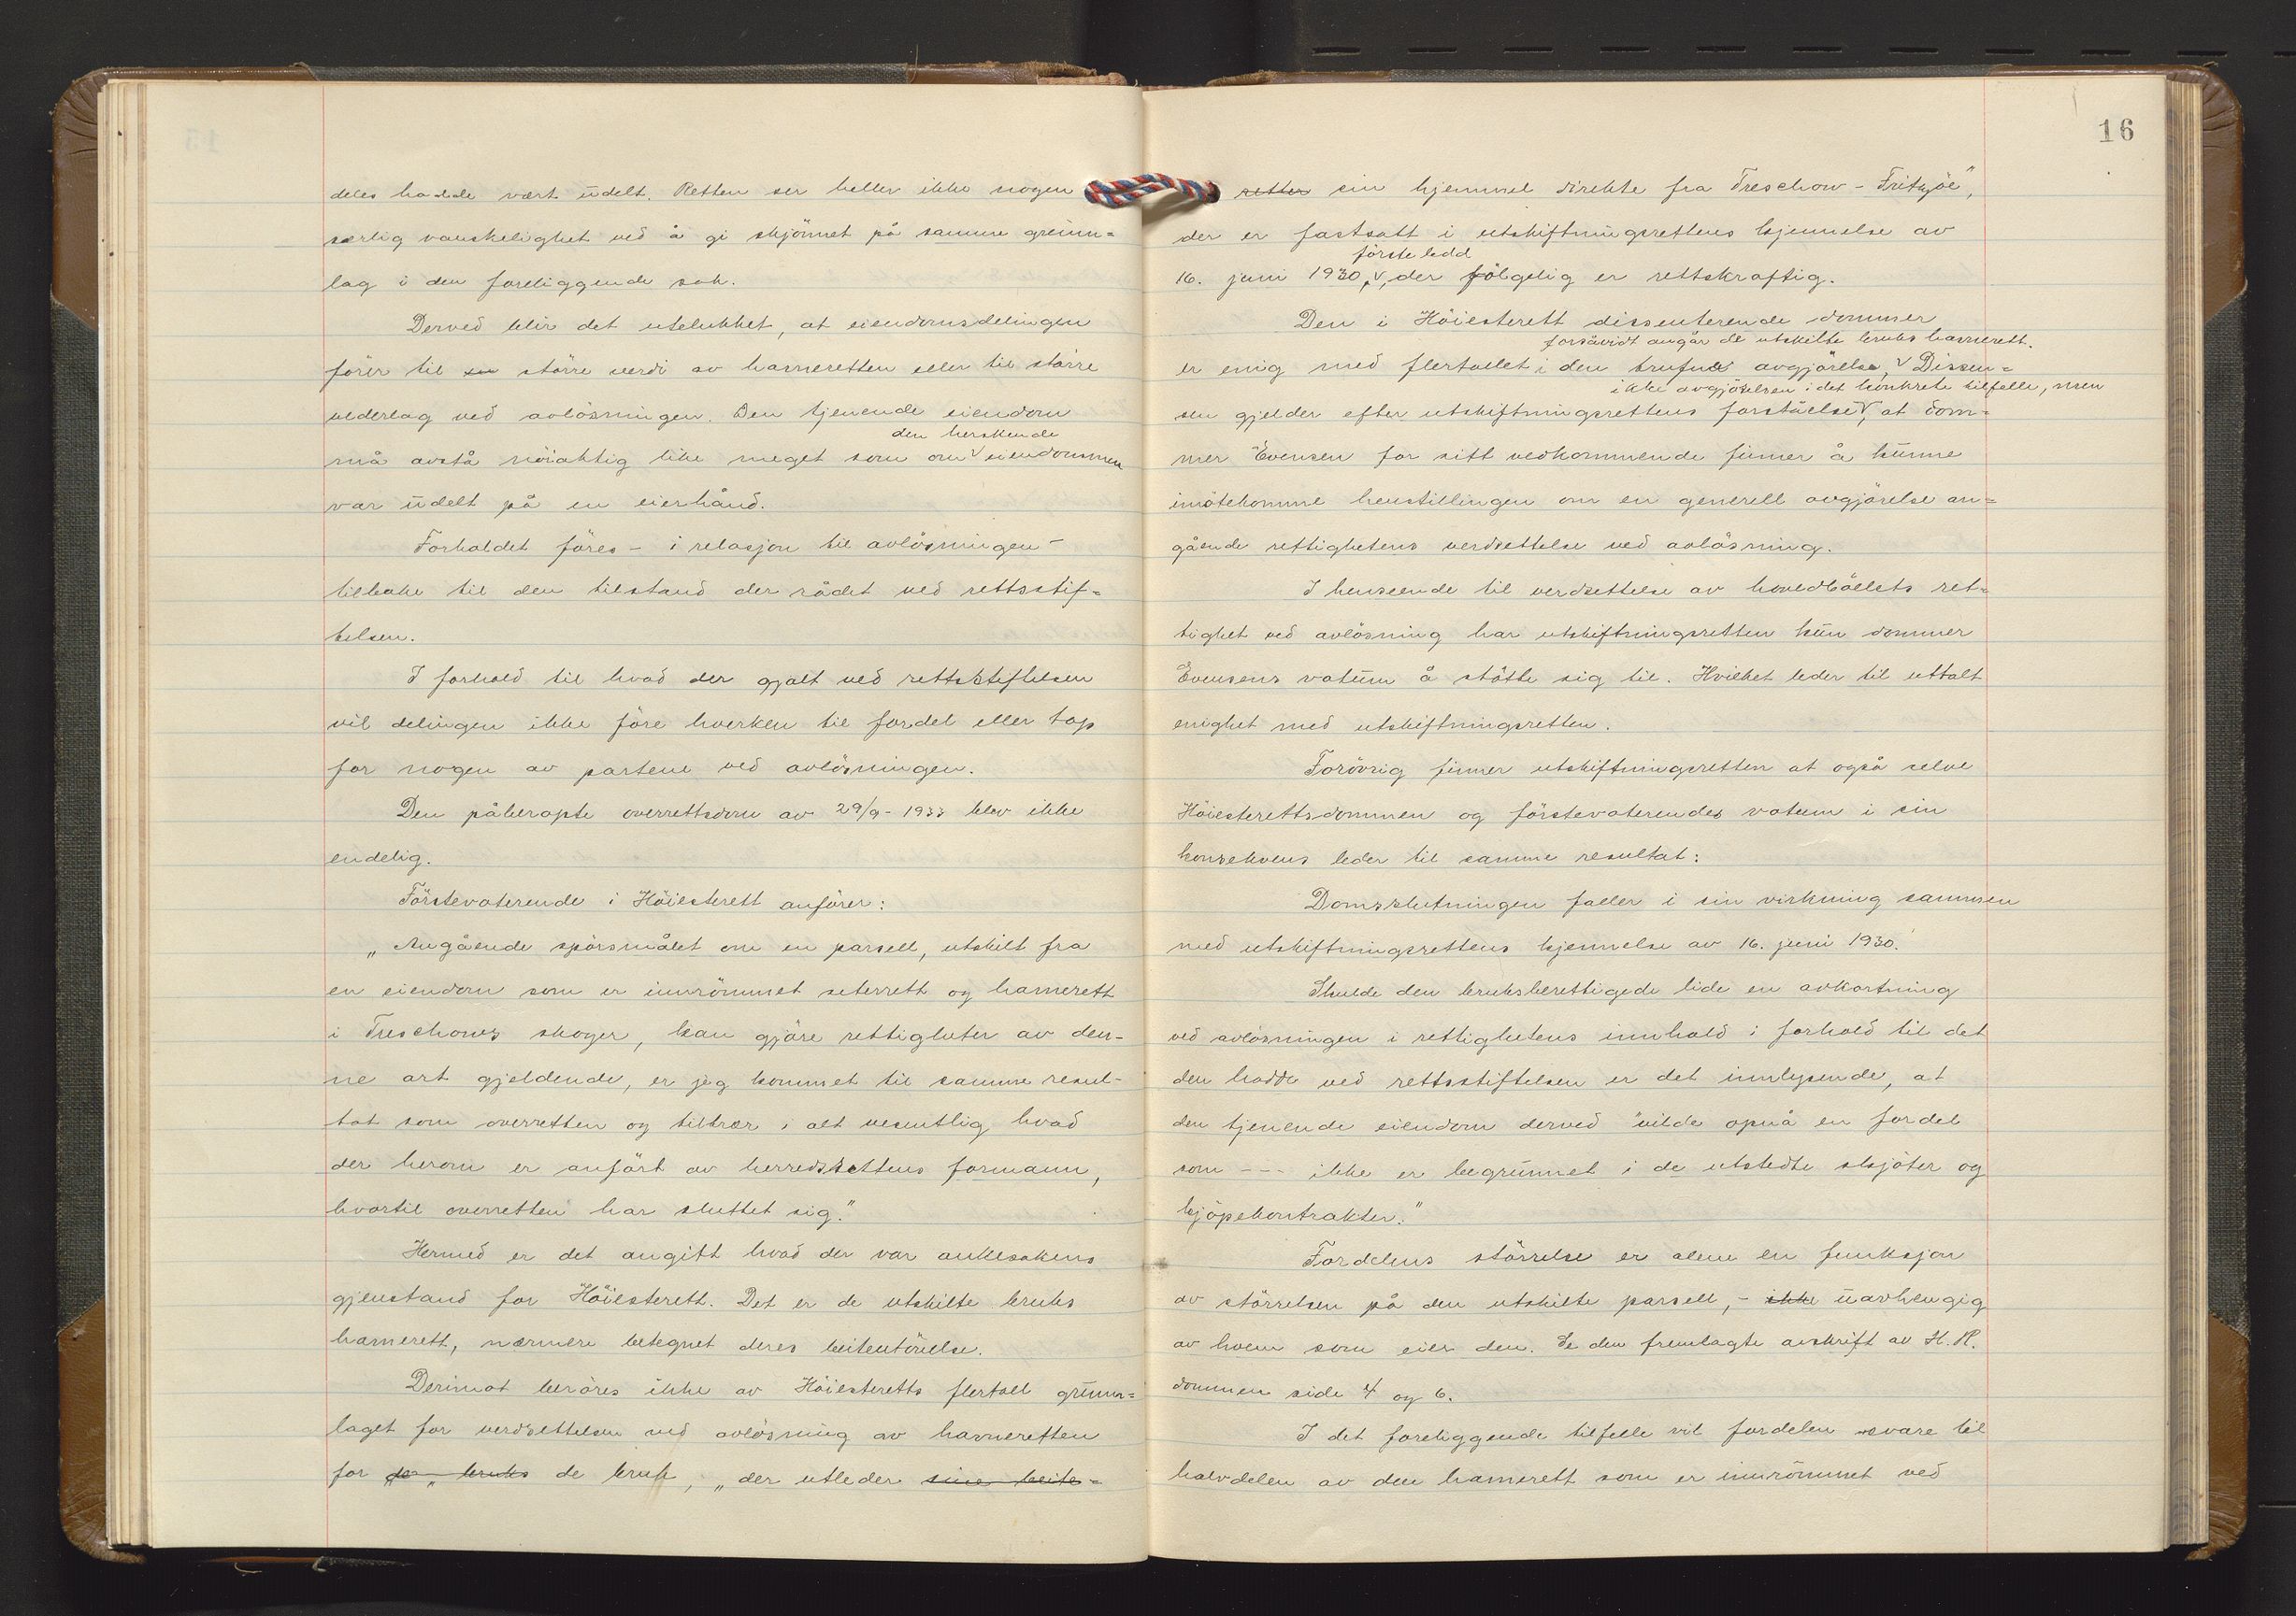 deles hadde vært udelt. Retten ser heller ikke nogen
særlig vanskelighet ved å gi skjönnet på samme grunn=
lag i den foreliggende sak.
Derved blir det utelukket, at eiendomsdelingen
förer til större verdi av havneretten eller til större
vederlag ved avlösningen. Den tjenende eiendom
den herskende
må avstå nöiaktig like meget som om v eiendommen
var udelt på en eierhånd.
Forholdet föres - i relasjon til avlösningen -
tilbake til den tilstand der rådet ved rettsstif=
telsen.
I forhold til hvad der gjalt ved rettsstiftelsen
vil delingen ikke före hverken til fordel eller tap
for nogen av partene ved avlösningen.
Den påberopte overrettsdom av 29/9 - 1933 blev ikke
endelig.
Förstevoterende i Höiesterett anförer:
„Angående spörsmålet om en parsell, utskilt fra
en eiendom som er innrömmet seterrett og havnerett
i Treschows skoger, kan gjöre rettigheter av den-
ne art gjeldende, er jeg kommet til samme resul-
tat som overretten og tiltrær i alt vesentlig hvad
der herom er anfört av herredsrettens formann,
hvortil overretten har sluttet sig."
Hermed er det angitt hvad der var ankesakens
gjenstand for Höiesterett. Det er de utskilte bruks
havnerett, nærmere betegnet deres beiteutövelse.
Derimot beröres ikke av Höiesteretts flertall grunn=
laget for verdsettelsen ved avlösning av havneretten
for de „bruks de bruk, „der utleder sine beite=
16
retter sin hjemmel direkte fra Treschow - Fritzöe",
der er fastsatt i utskiftningsrettens kjennelse av
förste ledd
16. juni 1930, v, der fölgelig er rettskraftig.
Den i Höiesterett dissenterende dommer
forsåvidt angår de utskilte bruks havnerett.
er enig med flertallet i den trufne avgjörelse, v Dissen=
ikke avgjörelsen i det konkrete tilfelle, men
sen gjelder efter utskiftningsrettens forståelse v, at dom=
mer Evensen for sitt vedkommende finner å kunne
imötekomme henstillingen om en generell avgjörelse an=
gående rettighetens verdsettelse ved avlösning.
I henseende til verdsettelse av hovedbölets ret=
tighet ved avlösning har utskiftningsretten kun dommer
Evensens votum å stötte sig til. Hvilket leder til uttalt
enighet med utskiftningsretten.
Forövrig finner utskiftningsretten at også selve
Höiesterettsdommen og förstevoterendes votum i sin
konsekvens leder til samme resultat:
Domsslutningen faller i sin virkning sammen
med utskiftningsrettens kjennelse av 16. juni 1930.
Skulde den bruksberettigede lide en avkortning
ved avlösningen i rettighetens innhold i forhold til det
den hadde ved rettsstiftelsen er det innlysende, at
den tjenende eiendom derved "vilde opnå en fordel
som --- ikke er begrunnet i de utstedte skjöter og
kjöpekontrakter."
Fordelens störrelse er alene en funksjon
av störrelsen på den utskilte parsell, - ikke uavhengig
av hvem som eier den. Se den fremlagte avskrift av H.R.
dommen side 4 og 6.
I det foreliggende tilfelle vil fordelen svare til
halvdelen av den havnerett som er innrömmet ved